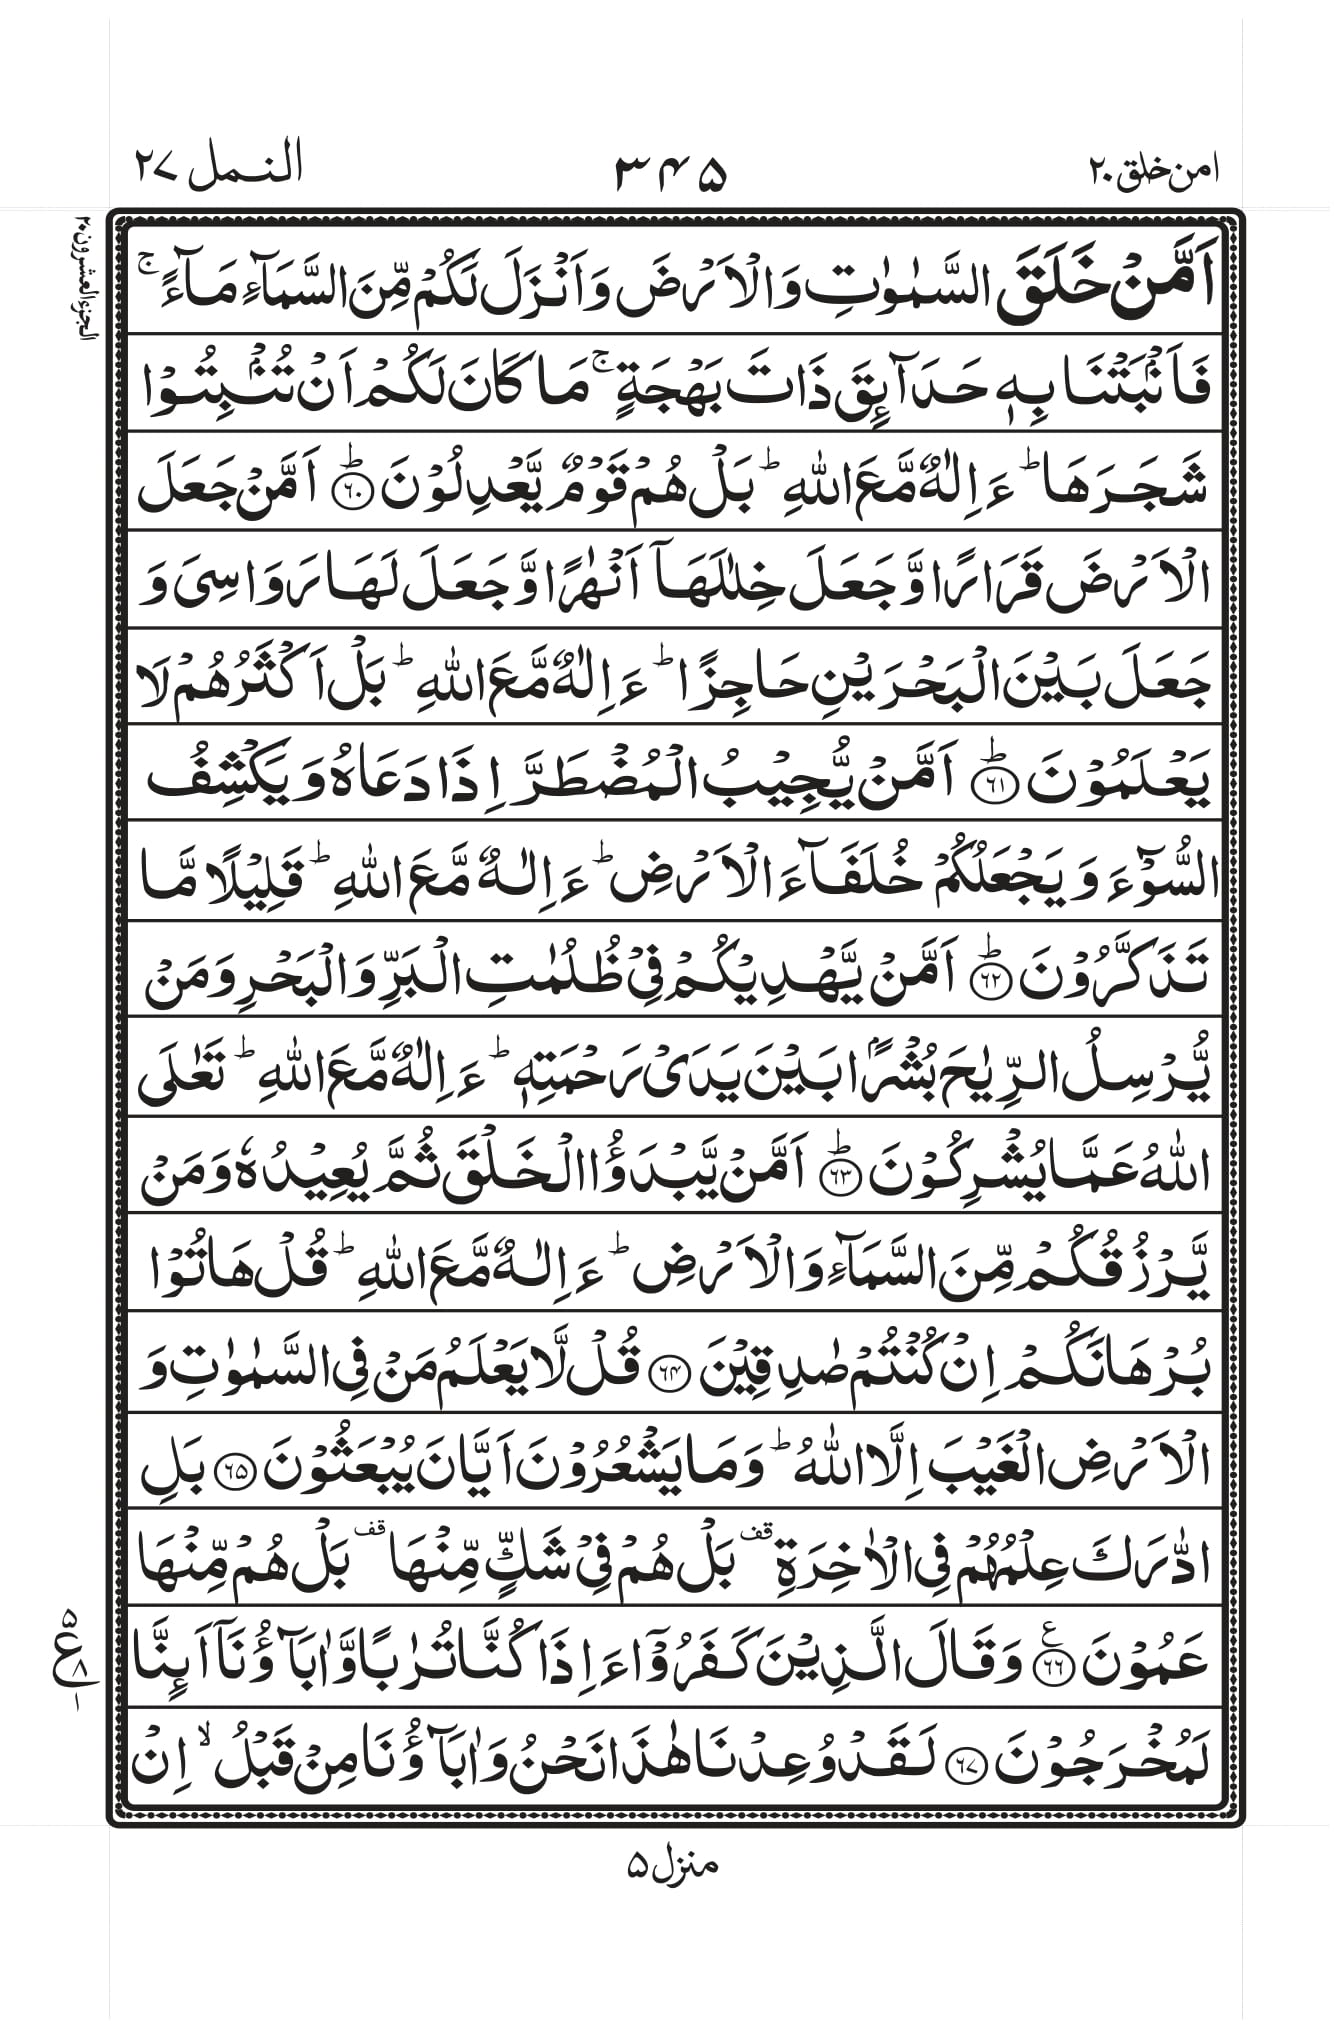 امن خلق ٢٠ ٣٤٥ النمل ٢٧
الجزء العشرون ٢٠
اَمَّنْ خَلَقَ السَّمٰوٰتِ وَالْاَرْضَ وَاَنْزَلَ لَكُمْ مِّنَ السَّمَآءِ مَآءً ۚ
فَاَنْۢبَتْنَا بِهٖ حَدَآئِقَ ذَاتَ بَهْجَةٍ ۚ مَا كَانَ لَكُمْ اَنْ تُنْۢبِتُوْا
شَجَرَهَا ؕ ءَاِلٰهٌ مَّعَ اللّٰهِ ؕ بَلْ هُمْ قَوْمٌ يَّعْدِلُوْنَ ؕ﴿٦٠﴾ اَمَّنْ جَعَلَ
الْاَرْضَ قَرَارًا وَّجَعَلَ خِلٰلَهَاۤ اَنْهٰرًا وَّجَعَلَ لَهَا رَوَاسِىَ وَ
جَعَلَ بَيْنَ الْبَحْرَيْنِ حَاجِزًا ؕ ءَاِلٰهٌ مَّعَ اللّٰهِ ؕ بَلْ اَكْثَرُهُمْ لَا
يَعْلَمُوْنَ ؕ﴿٦١﴾ اَمَّنْ يُّجِيْبُ الْمُضْطَرَّ اِذَا دَعَاهُ وَيَكْشِفُ
السُّوْٓءَ وَيَجْعَلُكُمْ خُلَفَآءَ الْاَرْضِ ؕ ءَاِلٰهٌ مَّعَ اللّٰهِ ؕ قَلِيْلًا مَّا
تَذَكَّرُوْنَ ؕ﴿٦٢﴾ اَمَّنْ يَّهْدِيْكُمْ فِىْ ظُلُمٰتِ الْبَرِّ وَالْبَحْرِ وَمَنْ
يُّرْسِلُ الرِّيٰحَ بُشْرًۢا بَيْنَ يَدَىْ رَحْمَتِهٖ ؕ ءَاِلٰهٌ مَّعَ اللّٰهِ ؕ تَعٰلَى
اللّٰهُ عَمَّا يُشْرِكُوْنَ ؕ﴿٦٣﴾ اَمَّنْ يَّبْدَؤُا الْخَلْقَ ثُمَّ يُعِيْدُهٗ وَمَنْ
يَّرْزُقُكُمْ مِّنَ السَّمَآءِ وَالْاَرْضِ ؕ ءَاِلٰهٌ مَّعَ اللّٰهِ ؕ قُلْ هَاتُوْا
بُرْهَانَكُمْ اِنْ كُنْتُمْ صٰدِقِيْنَ ﴿٦٤﴾ قُلْ لَّا يَعْلَمُ مَنْ فِى السَّمٰوٰتِ وَ
الْاَرْضِ الْغَيْبَ اِلَّا اللّٰهُ ؕ وَمَا يَشْعُرُوْنَ اَيَّانَ يُبْعَثُوْنَ ﴿٦٥﴾ بَلِ
ادّٰرَكَ عِلْمُهُمْ فِى الْاٰخِرَةِ قف بَلْ هُمْ فِىْ شَكٍّ مِّنْهَا قف بَلْ هُمْ مِّنْهَا
عَمُوْنَ ع﴿٦٦﴾ وَقَالَ الَّذِيْنَ كَفَرُوْۤا ءَاِذَا كُنَّا تُرٰبًا وَّاٰبَآؤُنَاۤ اَئِنَّا
٥ ع ٨ ١
لَمُخْرَجُوْنَ ﴿٦٧﴾ لَقَدْ وُعِدْنَا هٰذَا نَحْنُ وَاٰبَآؤُنَا مِنْ قَبْلُ ۙ اِنْ
منزل ٥